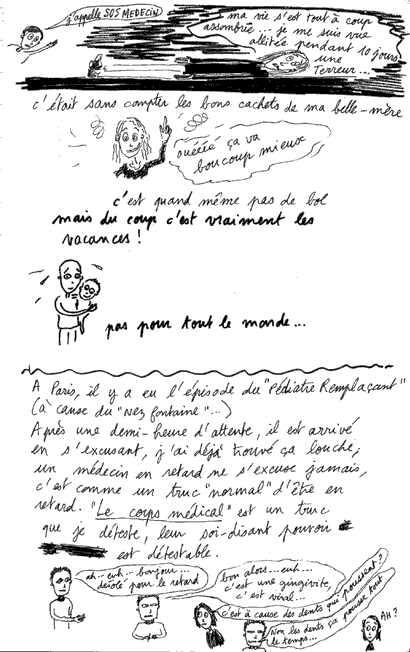 j'appelle SOS MEDECIN
ma vie s'est tout à coup
assombrie... je me suis vue
alitée pendant 10 jours
une
Terreur...
c'était sans compter les bons cachets de ma belle-mère
ouéééé ça va
boucoup mieux
c'est quand même pas de bol
mais du coup c'est vraiment les
vacances !
pas pour tout le monde...
A Paris, il y a eu l'épisode du "Pédiatre Remplaçant"
(à cause du "Nez Fontaine"...)
Après une demi-heure d'attente, il est arrivé
en s'excusant, j'ai déjà trouvé ça louche,
un médecin en retard ne s'excuse jamais,
c'est comme un truc "normal" d'être en
retard. "Le corps médical" est un truc
que je déteste, leur soi-disant pouvoir
est détestable.
ah.. euh... bonjour...
désolé pour le retard
bon alors... euh...
c'est une gingivite,
c'est viral...
c'est à cause des dents qui poussent ?
Non les dents ça pousse tout
le temps...
AH ?